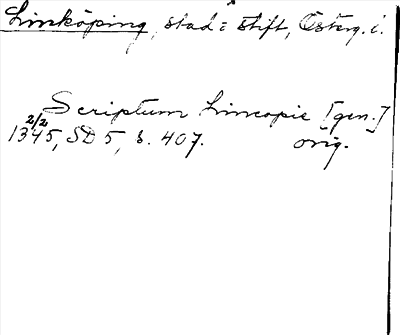 Linköping, stad o stift, Österg. l.
Scriptum Lincopie [gen.]
2/2
1345, SD 5, s. 407. orig.